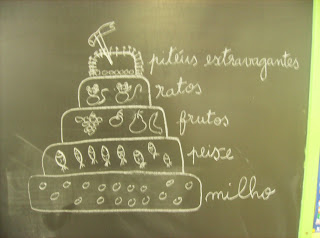 pitéus extravagantes
ratos
frutos
peixe
milho